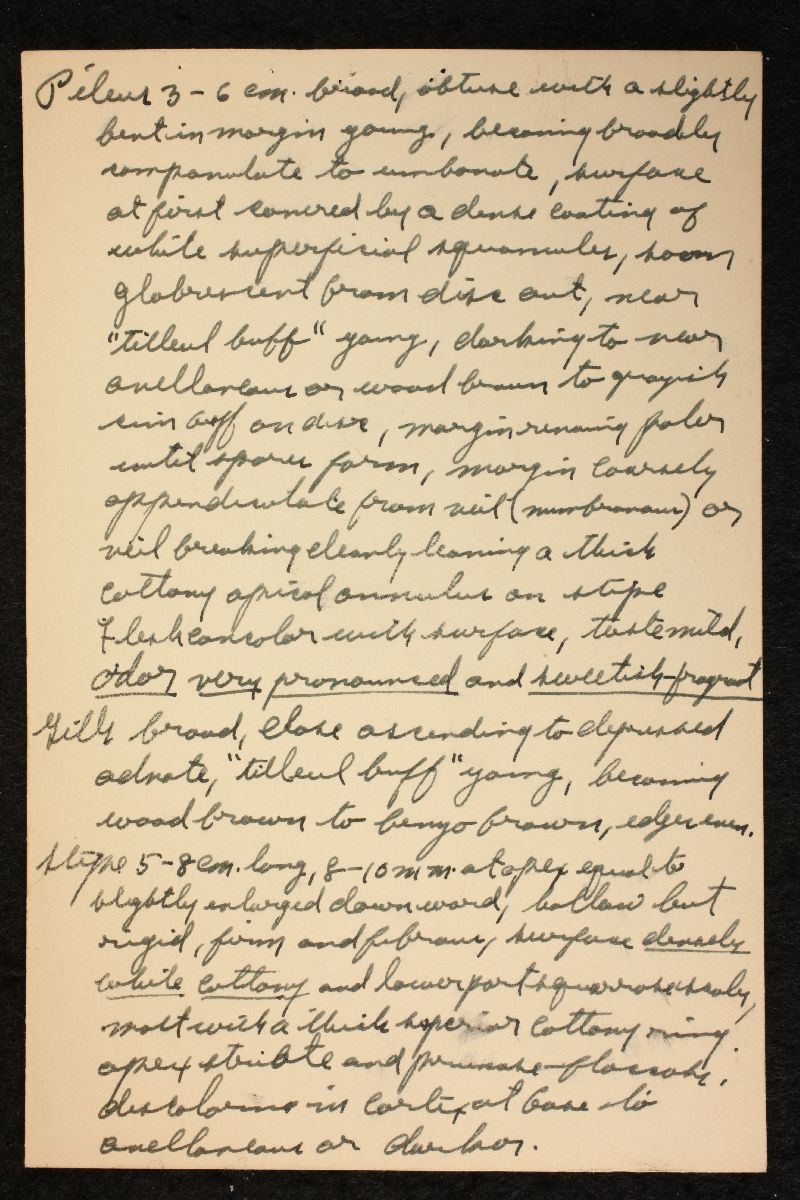 Pileus 3 - 6 cm. broad, obtuse with a slightly
bent in margin young, becoming broadly
campanulate to umbonate, surface
at first covered by a dense coating of
white superficial squamules, soon
glabrescent from disc out, near
"tilleul buff" young, darking to near
avellaneous or wood brown to grayish
cinn buff on disc, margin remaing paler
until spores form, margin coarsely
appendiculate from veil (membranous) or
veil breaking cleanly leaving a thick
cottony apical annulus on stipe
Flesh concolor with surface, taste mild,
odor very pronounced and sweetish-fragrant
Gills broad, close ascending to depressed
adnate, "tilleul buff" young, becoming
wood brown to benzo brown, edges even.
Stipe 5-8 cm. long, 8-10 mm. at apex equal to
slightly enlarged downward, hollow but
rigid, firm and fibrous, surface densely
white cottony and lower part squarrose scaly,
most with a thick superior cottony ring.
apex striate and pruinose-floccose,
discoloring in cortex at base to
avellaneous or darker.